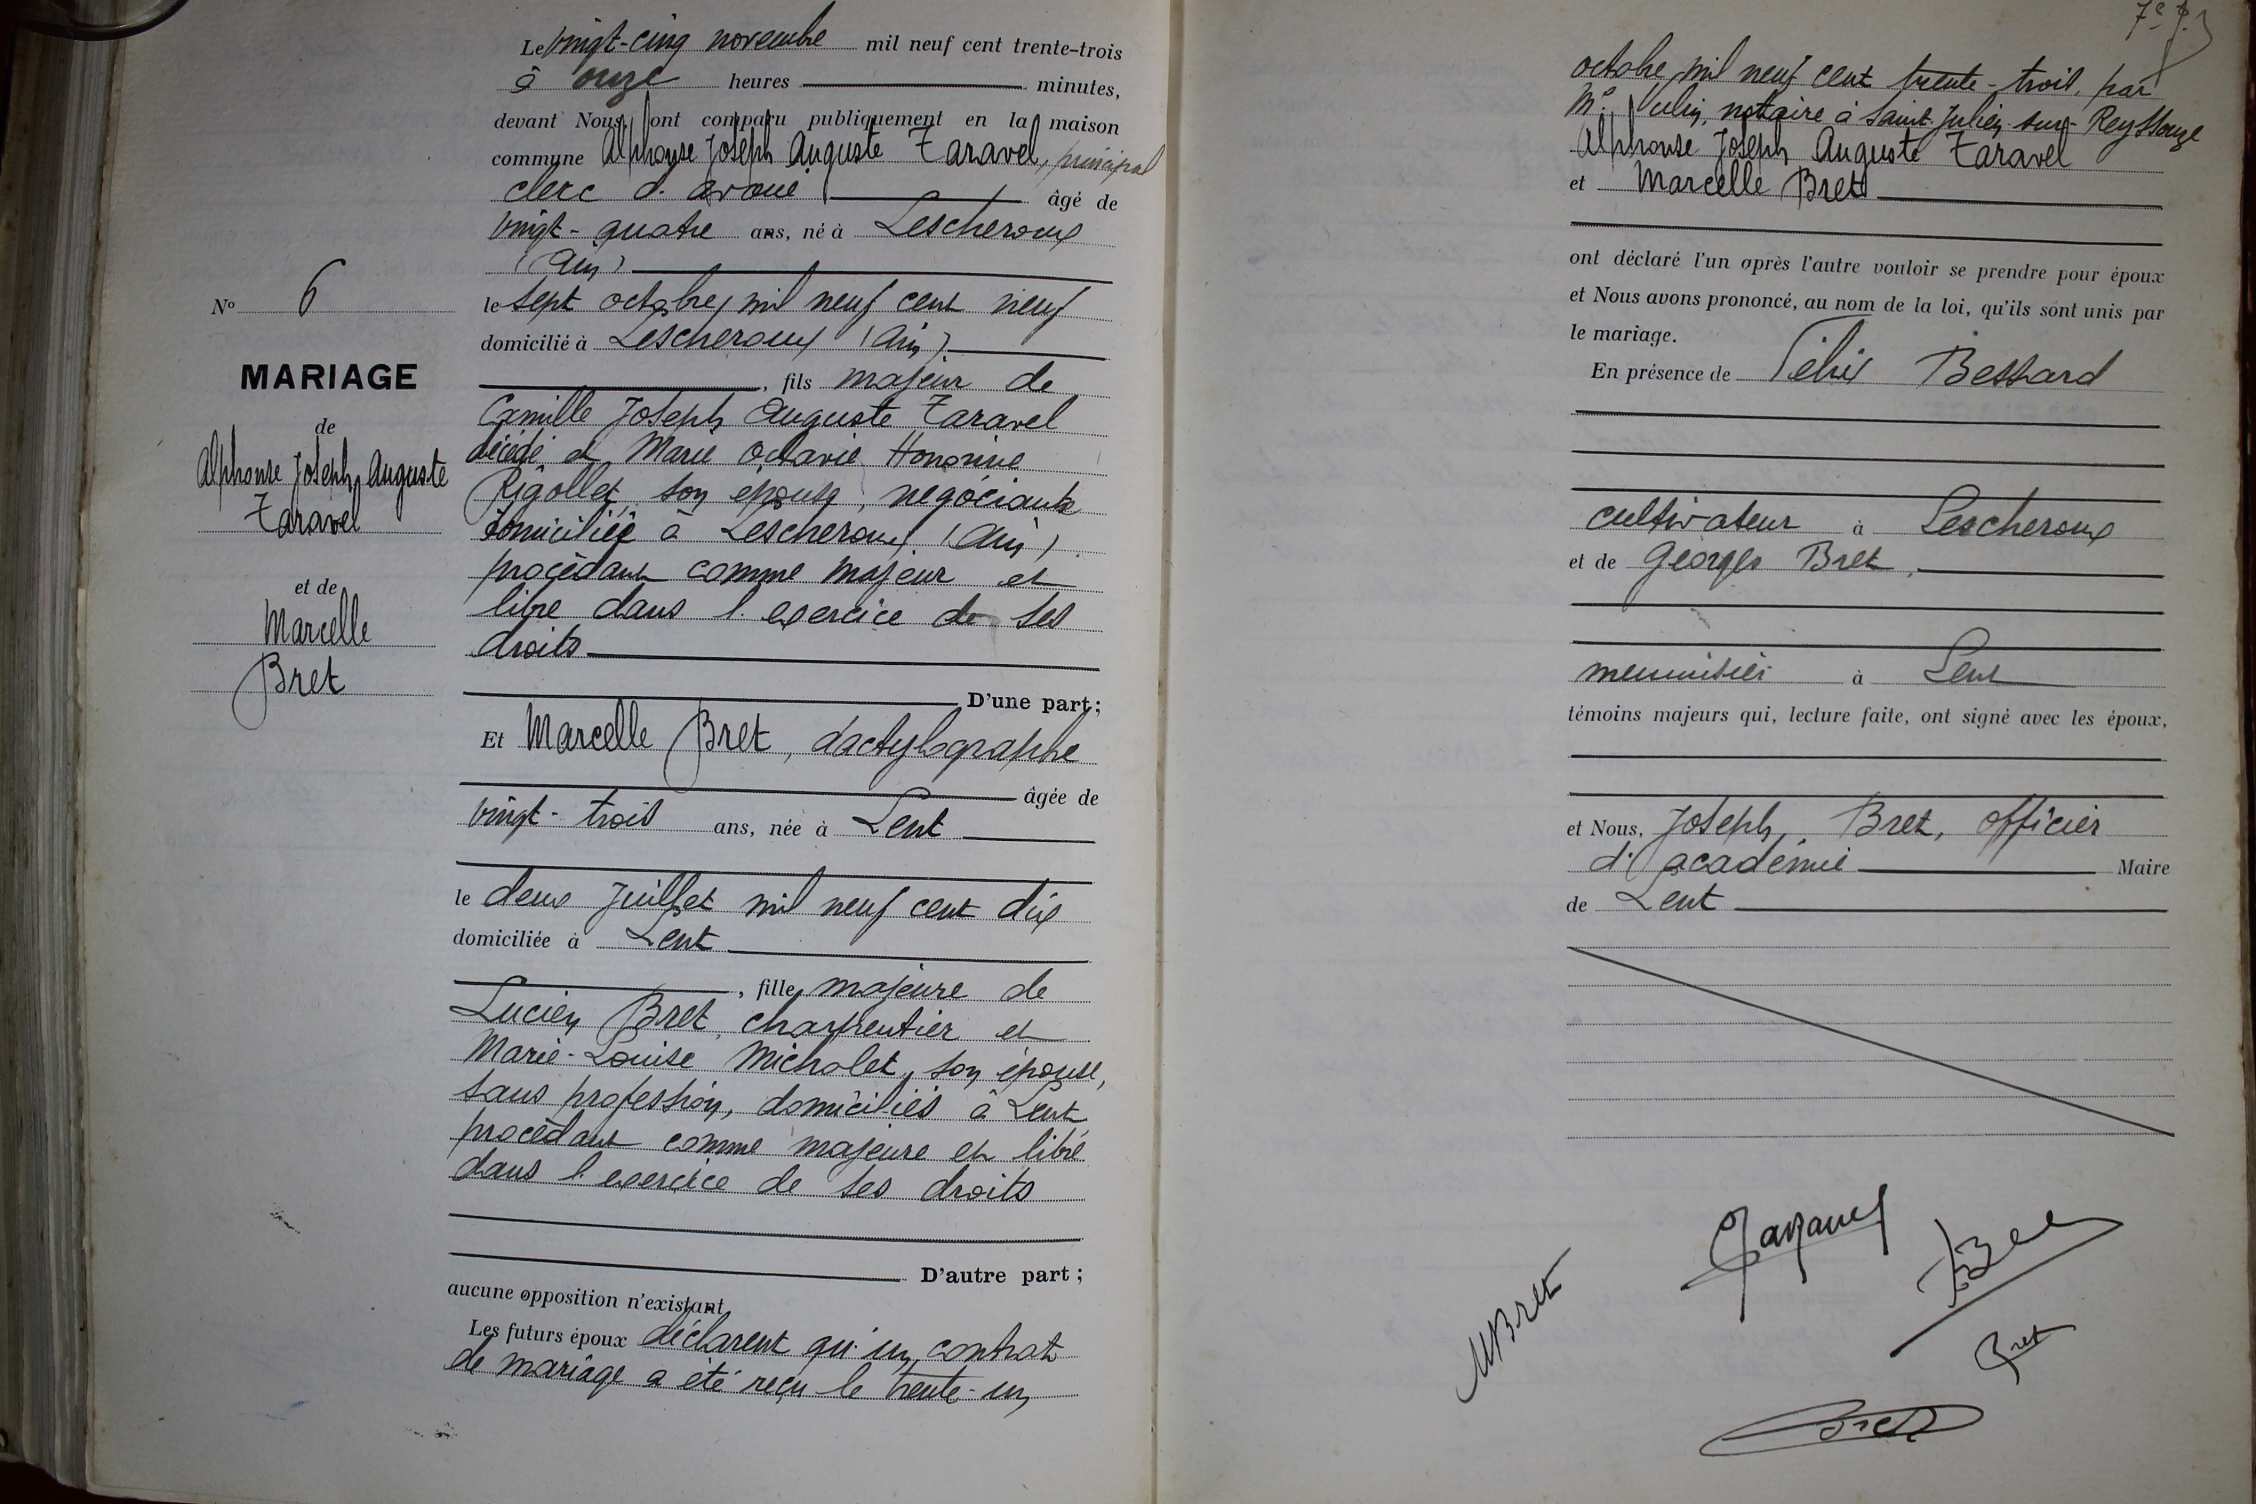 N° 6
MARIAGE
de
Alphonse Joseph Auguste
Taravel
et de
Marcelle
Bret
Le vingt-cinq novembre mil neuf cent trente-trois
à onze heures minutes,
devant Nous, ont comparu publiquement en la maison
commune Alphonse Joseph Auguste Taravel, principal
clerc d'avoué âgé de
vingt-quatre ans, né à Lescheroux
(Ain)
le sept octobre mil neuf cent neuf
domicilié à Lescheroux (Ain)
, fils majeur de
Camille Joseph Auguste Taravel
décédé et Marie Octavie Honorine
Rigollet, son épouse, négociante
domiciliée à Lescheroux (Ain)
procédant comme majeur et
libre dans l'exercice de ses
droits
D'une part;
Et Marcelle Bret, dactylographe
âgée de
vingt-trois ans, née à Lent
le deux juillet mil neuf cent dix
domiciliée à Lent
, fille majeure de
Lucien Bret, charpentier et
Marie-Louise Micholet, son épouse,
sans profession, domiciliés à Lent
procédant comme majeure et libre
dans l'exercice de ses droits
D'autre part;
aucune opposition n'existant
Les futurs époux déclarent qu'un contrat
de mariage a été reçu le trente-un
octobre mil neuf cent trente-trois, par
Me notaire à Saint-Julien-sur-Reyssouze
Alphonse Joseph Auguste Taravel
et Marcelle Bret
ont déclaré l'un après l'autre vouloir se prendre pour époux
et Nous avons prononcé, au nom de la loi, qu'ils sont unis par
le mariage.
En présence de Félix Bessard
cultivateur à Lescheroux
et de Georges Bret,
menuisier à Lent
témoins majeurs qui, lecture faite, ont signé avec les époux,
et Nous, Joseph Bret, officier
d'académie Maire
de Lent
MBret
Taravel
Bret
Bret